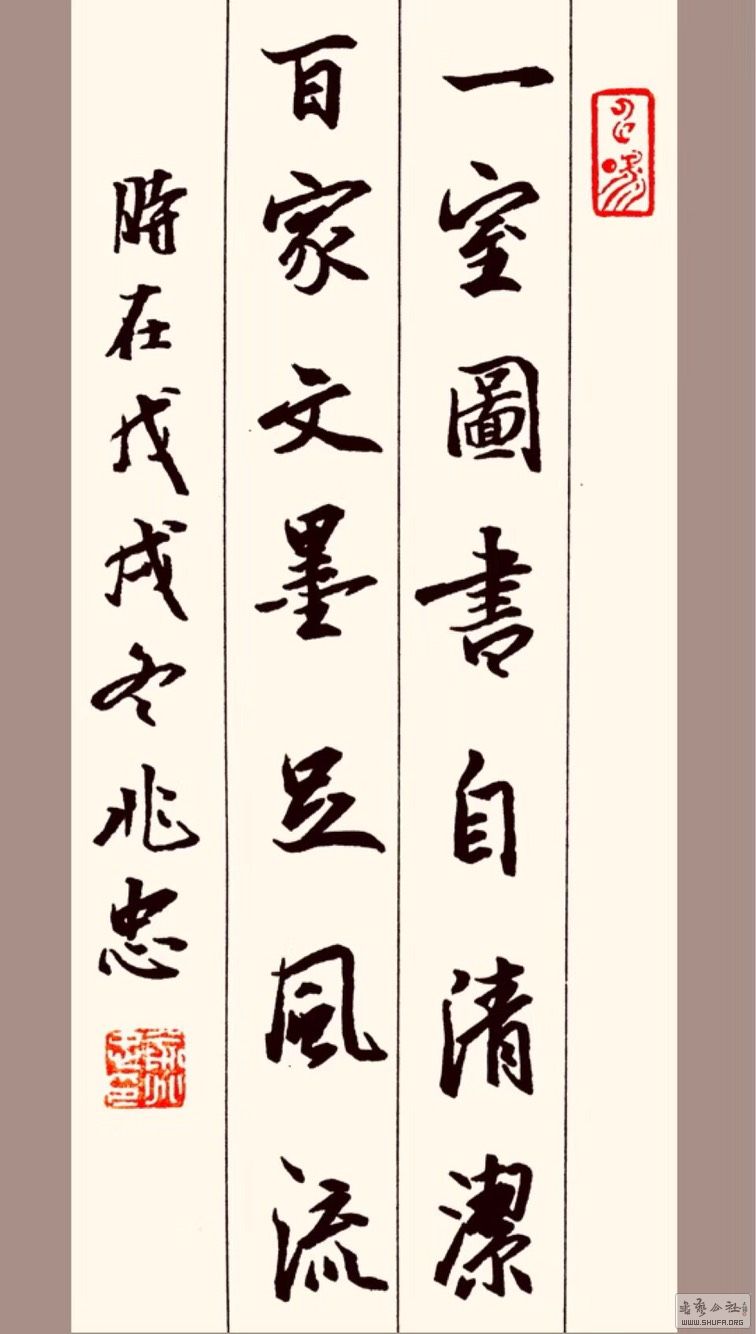 一室圖書自清潔
百家文墨足風流
時在戊戌冬兆忠
WWW.SHUFA.ORG